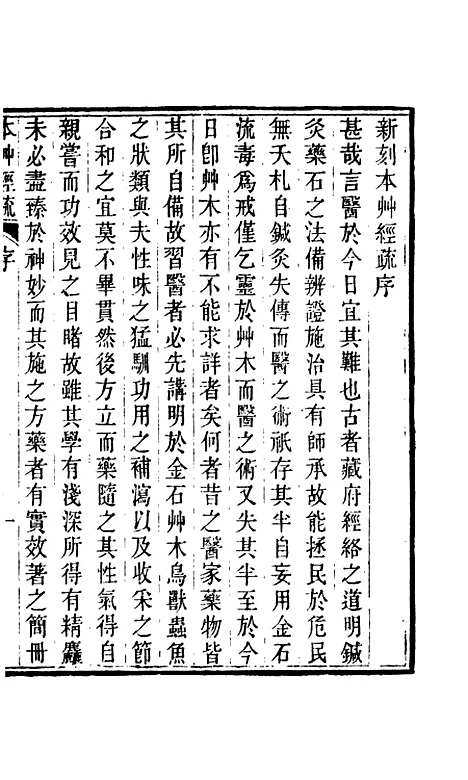 新刻本艸經疏序
甚哉言醫於今日宜其難也古者藏府經絡之道明鍼
灸藥石之法備辨證施治具有師承故能拯民於危民
無夭札自鍼灸失傳而醫之術祇存其半自妄用金石
流毒爲戒僅乞靈於艸木而醫之術又失其半至於今
日卽艸木亦有不能求詳者矣何者昔之醫家藥物皆
其所自備故習醫者必先講明於金石艸木鳥獸蟲魚
之狀類與夫性味之猛馴功用之補瀉以及收采之節
合和之宜莫不畢貫然後方立而藥隨之其性氣得自
親嘗而功效見之目睹故雖其學有淺深所得有精麤
未必盡臻於神妙而其施之方藥者有實效著之簡冊
本艸經疏 序 一